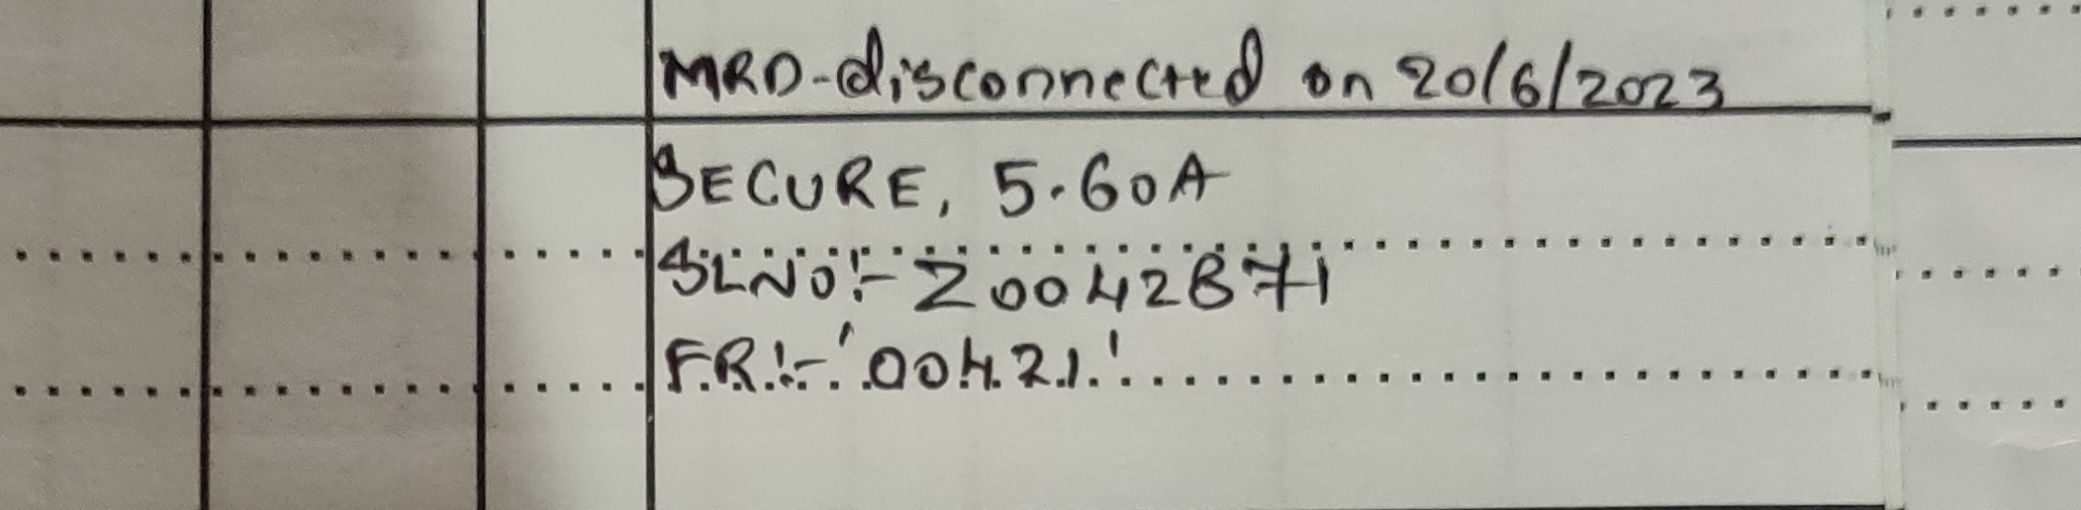 MRD-disconnected on 20/6/2023
SECURE, 5.60A
SLNO:- Z0042871
F.R:- '00421'